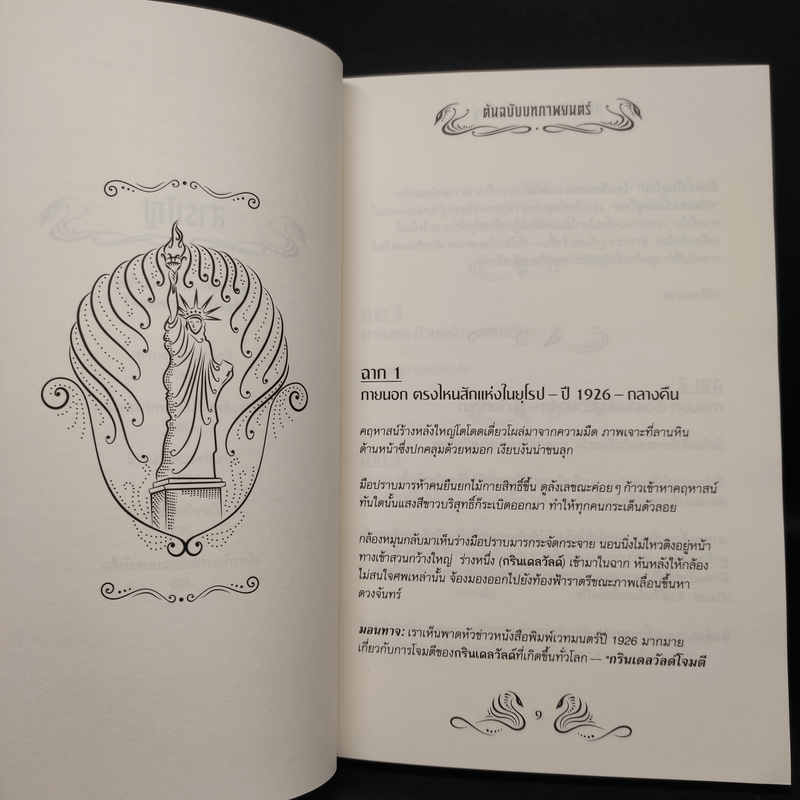 ต้นฉบับบทภาพยนตร์
ฉาก 1
ภายนอก ตรงไหนสักแห่งในยุโรป – ปี 1926 – กลางคืน
คฤหาสน์ร้างหลังใหญ่โตโดดเดี่ยวโผล่มาจากความมืด ภาพเจาะที่ลานหิน
ด้านหน้าซึ่งปกคลุมด้วยหมอก เงียบงันน่าขนลุก
มือปราบมารห้าคนยืนยกไม้กายสิทธิ์ขึ้น ดูลังเลขณะค่อยๆ ก้าวเข้าหาคฤหาสน์
ทันใดนั้นแสงสีขาวบริสุทธิ์ก็ระเบิดออกมา ทำให้ทุกคนกระเด็นตัวลอย
กล้องหมุนกลับมาเห็นร่างมือปราบมารกระจัดกระจาย นอนนิ่งไม่ไหวติงอยู่หน้า
ทางเข้าสวนกว้างใหญ่ ร่างหนึ่ง (กรินเดลวัลด์) เข้ามาในฉาก หันหลังให้กล้อง
ไม่สนใจศพเหล่านั้น จ้องมองออกไปยังท้องฟ้าราตรีขณะภาพเลื่อนขึ้นหา
ดวงจันทร์
มอนทาจ: เราเห็นพาดหัวข่าวหนังสือพิมพ์เวทมนตร์ปี 1926 มากมาย
เกี่ยวกับการโจมตีของกรินเดลวัลด์ที่เกิดขึ้นทั่วโลก — "กรินเดลวัลด์โจมตี
9